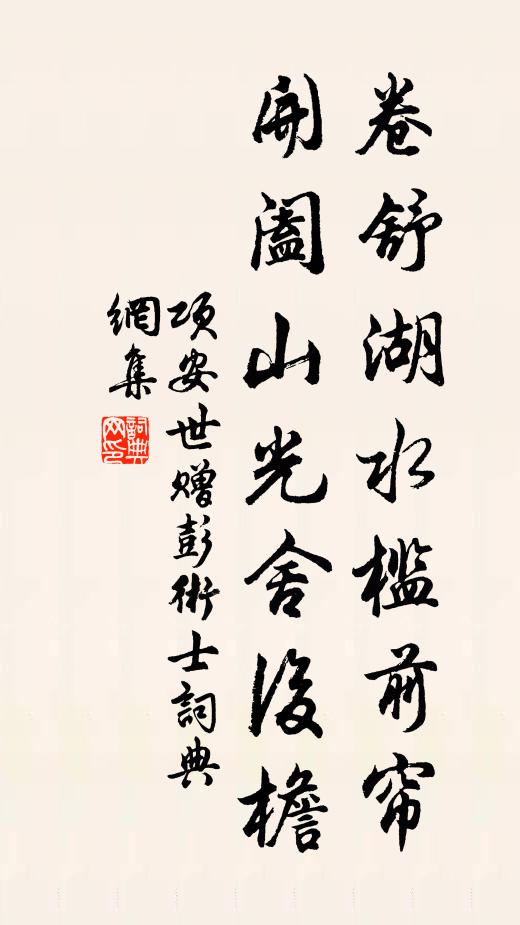 卷舒湖水檻前帘
開闔山光舍後檐
項安世贈彭術士詞典
網集
詞典網印